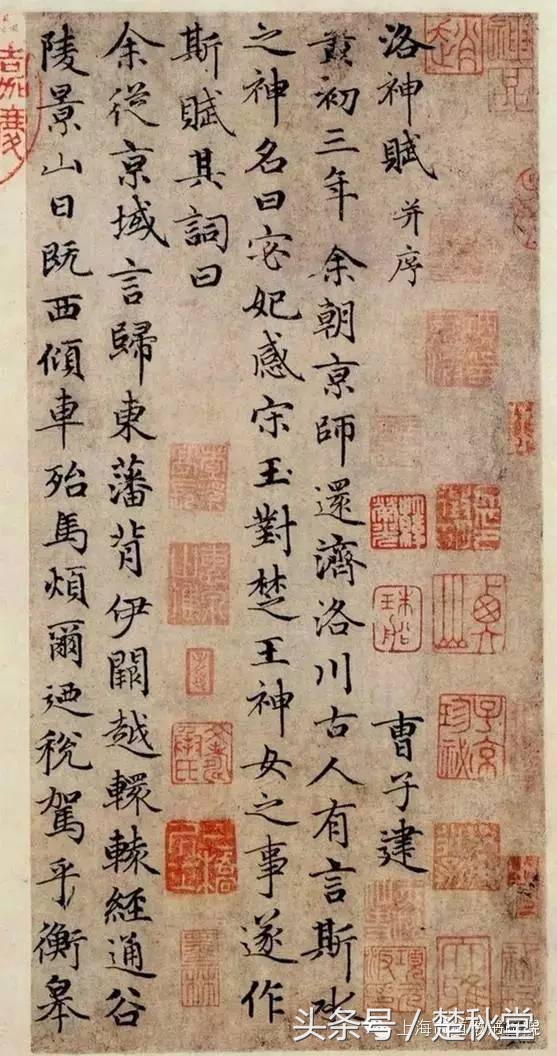 洛神賦 并序 曹子建
黃初三年余朝京師還濟洛川古人有言斯水
之神名曰宓妃感宋玉對楚王神女之事遂作
斯賦其詞曰
余從京域言歸東藩背伊闕越轘轅經通谷
陵景山日既西傾車殆馬煩爾迺稅駕乎衡皋
頭条号 楚秋堂